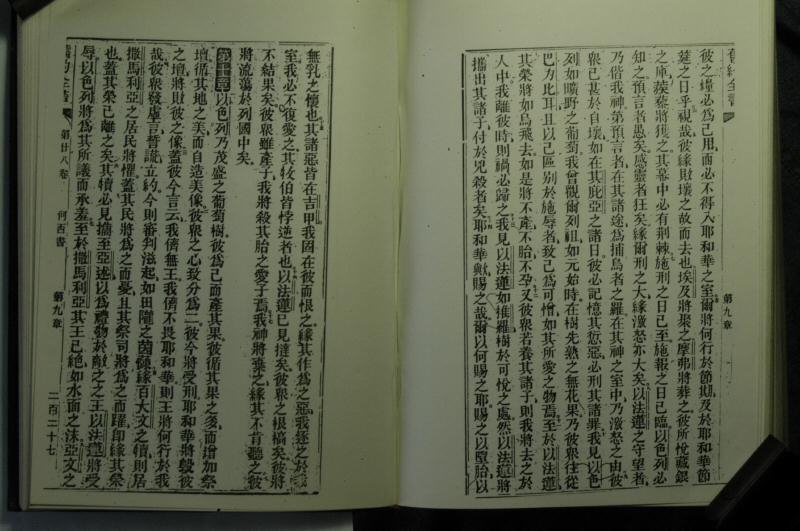 舊約全書
第九章
彼之壇必爲己用而必不得入耶和華之室爾將何行於節期及於耶和華節
筵之日乎視哉彼緣財壞之故而去也埃及將聚之摩弗將葬之彼所悅藏銀
之庫蒺藜將獲之其幕中必有荆棘施刑之日已至施報之日已臨以色列必
知之預言者愚矣感靈者狂矣緣爾刑之大緣潑怒亦大矣以法蓮之守望者
乃偕我神第預言者在其諸途爲捕鳥者之羅在其神之室中乃潑怒之由彼
衆已甚於自壞如在其庇亞之諸日彼必記憶其愆惡必刑其諸罪我見以色
列如曠野之葡萄我曾觀爾列祖如元始時在樹先熟之無花果乃彼衆往從
巴力比耳且以己區別於施辱者致己爲可憎如其所愛之物焉至於以法蓮
其榮將如鳥飛去如是將不產不胎不孕又彼衆若養其諸子則我將去之於
人中我離彼時則禍必歸之我見以法蓮如推羅樹於可悅之處然以法蓮將
攜出其諸子付於兇殺者矣耶和華歟賜之哉爾以何賜之耶賜之以墮胎以
無乳之懷也其諸惡皆在吉甲我固在彼而恨之緣其作爲之惡我逐之於我
室我必不復愛之其牧伯皆悖逆者也以法蓮已見撻矣彼衆之根槁矣彼將
不結果矣彼衆雖產子我將殺其胎之愛子焉我神將棄之緣其不肯聽之彼
將流蕩於列國中矣
第十章以色列乃茂盛之葡萄樹彼爲己而產其果彼循其果之多而增加祭
壇循其地之美而自造美像彼衆之心致分爲二彼今將受刑耶和華將毀彼
之壇將敗彼之像蓋彼今言云我儕無王我儕不畏耶和華則王將何行於我
哉彼衆發虛言誓謊立約今則審判滋起如田隴之茵蔯緣百大文之犢則居
撒馬利亞之居民將懼蓋其民將爲之而憂且其祭司將爲之而躍卽緣其榮
也蓋其榮已離之矣其犢必見攜至亞述以爲禮物於敵之之王以法蓮將受
辱以色列將爲其所議而承羞至於撒馬利亞其王已絶如水面之沫亞文之
舊約全書
第廿八卷
何西書
第九章
二百二十七